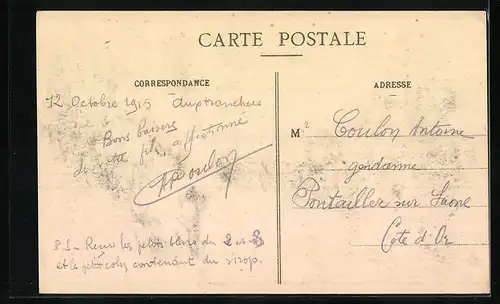 CARTE POSTALE
CORRESPONDANCE
12 Octobre 1915 aux tranchées
Bons baisers
du petit fils affectionné
ACoulon
P.S. - Reçu les petits bleus du 2 et 3
et le petit colis contenant du sirop.
ADRESSE
Mr Coulon Antoine
gendarme
Pontailler sur Saone
Cote d'Or